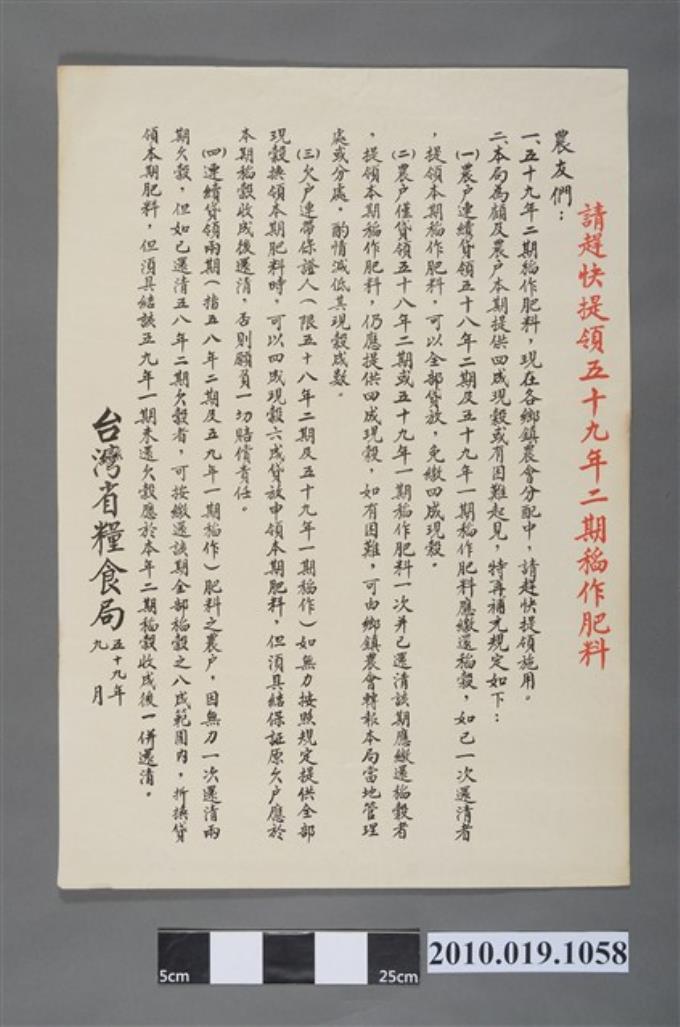 請趕快提領五十九年二期稻作肥料
農友們：
一、五十九年二期稻作肥料，現在各鄉鎮農會分配中，請趕快提領施用。
二、本局為顧及農戶本期提供四成現穀或有困難起見，特再補充規定如下：
㈠農戶連續貸領五十八年二期及五十九年一期稻作肥料應繳還稻穀，如已一次還清者
，提領本期稻作肥料，可以全部貸放，免繳四成現穀。
㈡農戶僅貸領五十八年二期或五十九年一期稻作肥料一次并已還清該期應繳還稻穀者
，提領本期稻作肥料，仍應提供四成現穀，如有困難，可由鄉鎮農會轉報本局當地管理
處或分處，酌情減低其現穀成數。
㈢欠戶連帶保證人（限五十八年二期及五十九年一期稻作）如無力按照規定提供全部
現穀換領本期肥料時，可以四成現穀六成貸放申領本期肥料，但須具結保証原欠戶應於
本期稻穀收成後還清，否則願負一切賠償責任。
㈣連續貸領兩期（指五八年二期及五九年一期稻作）肥料之農戶，因無力一次還清兩
期欠穀，但如已還清五八年二期欠穀者，可按繳還該期全部稻穀之八成範圍內，折換貸
領本期肥料，但須具結該五九年一期未還欠穀應於本年二期稻穀收成後一併還清。
台灣省糧食局
五十九年
九月
5cm
25cm
2010.019.1058